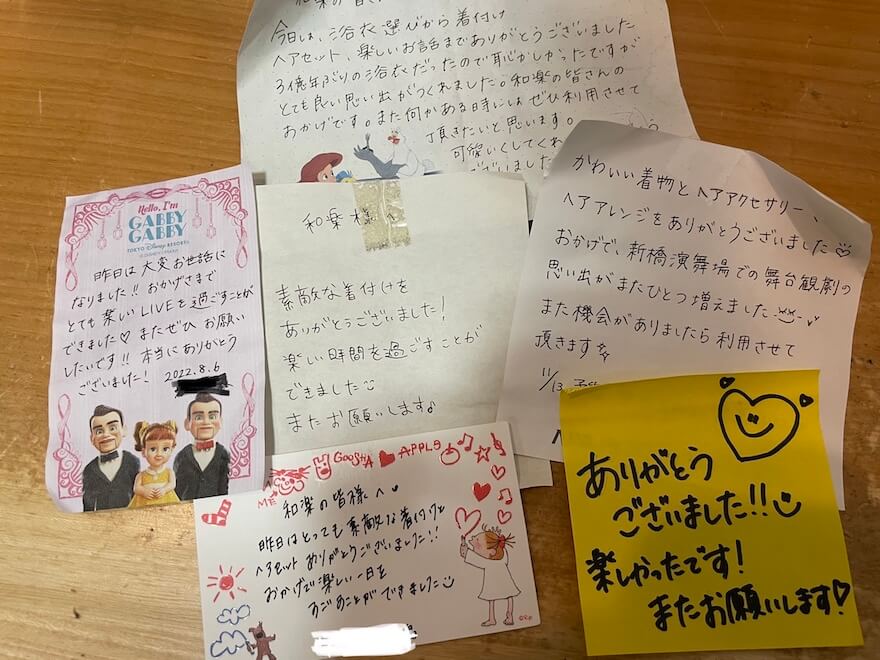 和楽の皆
今日は、浴衣選びから着付け
ヘアセット、楽しいお話までありがとうございました
3億年ぶりの浴衣だったので恥ずかしかったですが
とても良い思い出がつくれました。和楽の皆さんの
おかげです。また何かある時にはぜひ利用させて
頂きたいと思います。
可愛いくしてくれ
ございました
Hello, I'm
GABBY
GABBY
TOKYO Disney RESORT
昨日は大変お世話に
なりました!! おかげさまで
とても楽しいLIVEを過ごすことが
できました♡ またぜひお願い
したいです!! 本当にありがとう
ございました!
2022.8.6
和楽様へ
素敵な着付けを
ありがとうございました!
楽しい時間を過ごすことが
できました
またお願いします♪
かわいい着物とヘアアクセサリー、
ヘアアレンジをありがとうございました♡
おかげで、新橋演舞場での舞台観劇の
思い出がまたひとつ増えました
また機会がありましたら利用させて
頂きます
11/13
GOOSHA ♥ APPLE
和楽の皆様へ
昨日はとっても素敵な着付けと
ヘアセットありがとうございました!!
おかげで楽しい一日を
すごすことができました
ありがとう
ございました!!
楽しかったです!
またお願いします♡